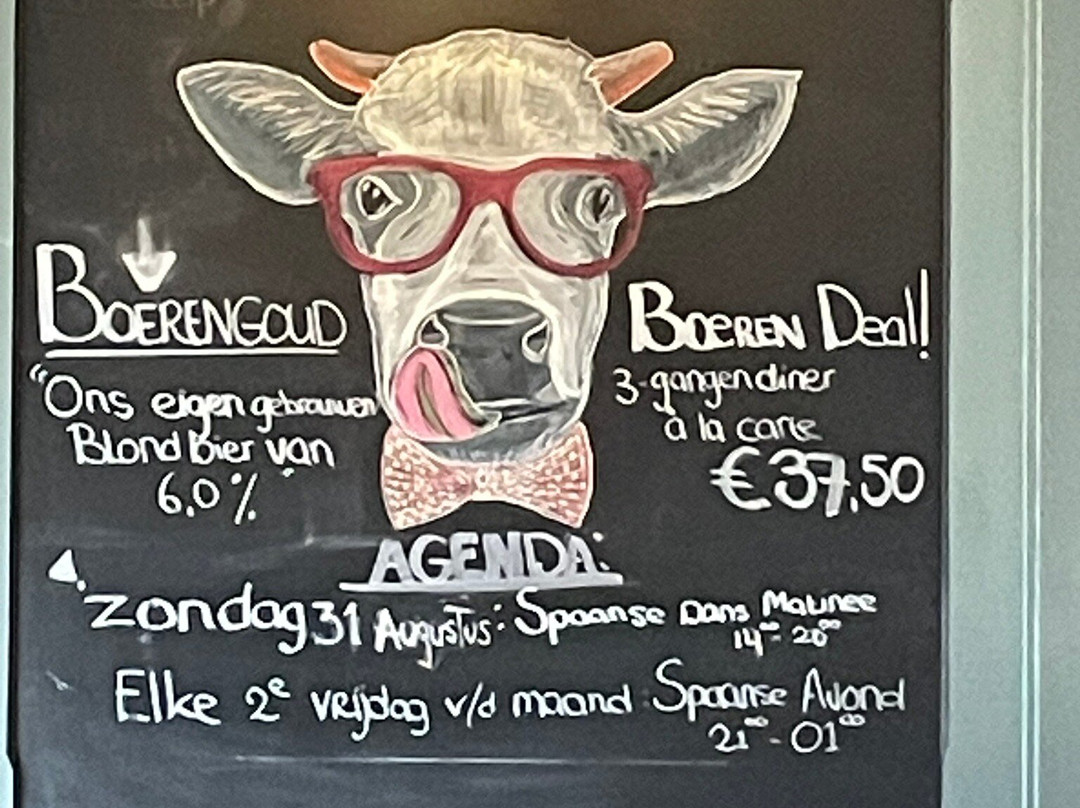 BOERENGOUD
"Ons eigen gebrouwen
Blond Bier van
6,0%"
BOEREN Deal!
3-gangen diner
à la carte
€37,50
AGENDA:
Zondag 31 Augustus: Spaanse Dans Matinee
14⁰⁰ - 20⁰⁰
Elke 2e vrijdag v/d maand Spaanse Avond
21⁰⁰ - 01⁰⁰